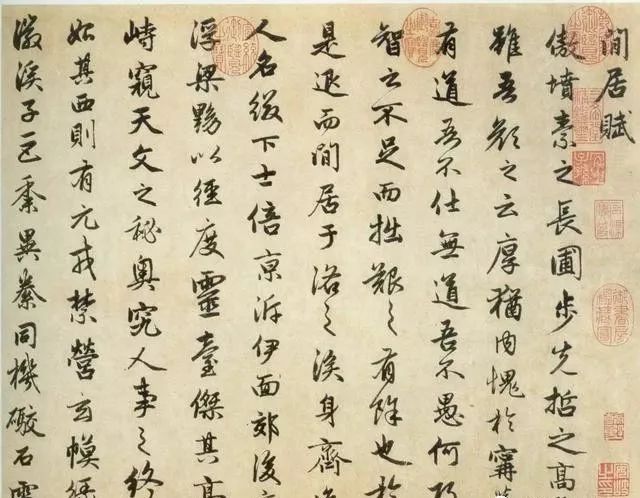 閒居賦
傲墳素之長圃步先哲之高
雖吾顏之云厚猶內愧於甯
有道吾不仕無道吾不愚何
智之不足而拙艱之有餘也於
是退而閒居于洛之涘身齊
人名綴下士倍京泝伊面郊後
浮梁黝以徑度靈臺傑其高
峙窺天文之秘奧究人事之終
始其西則有元戎禁營玄幙綠
徽溪子巨黍異豢同機礮石雷